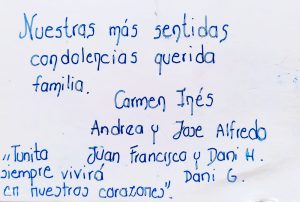 Nuestras más sentidas
condolencias querida
familia.
Carmen Inés
Andrea y Jose Alfredo
Juan Francisco y Dani H.
Dani G.
„Tunita
siempre vivirá
en nuestros corazones".